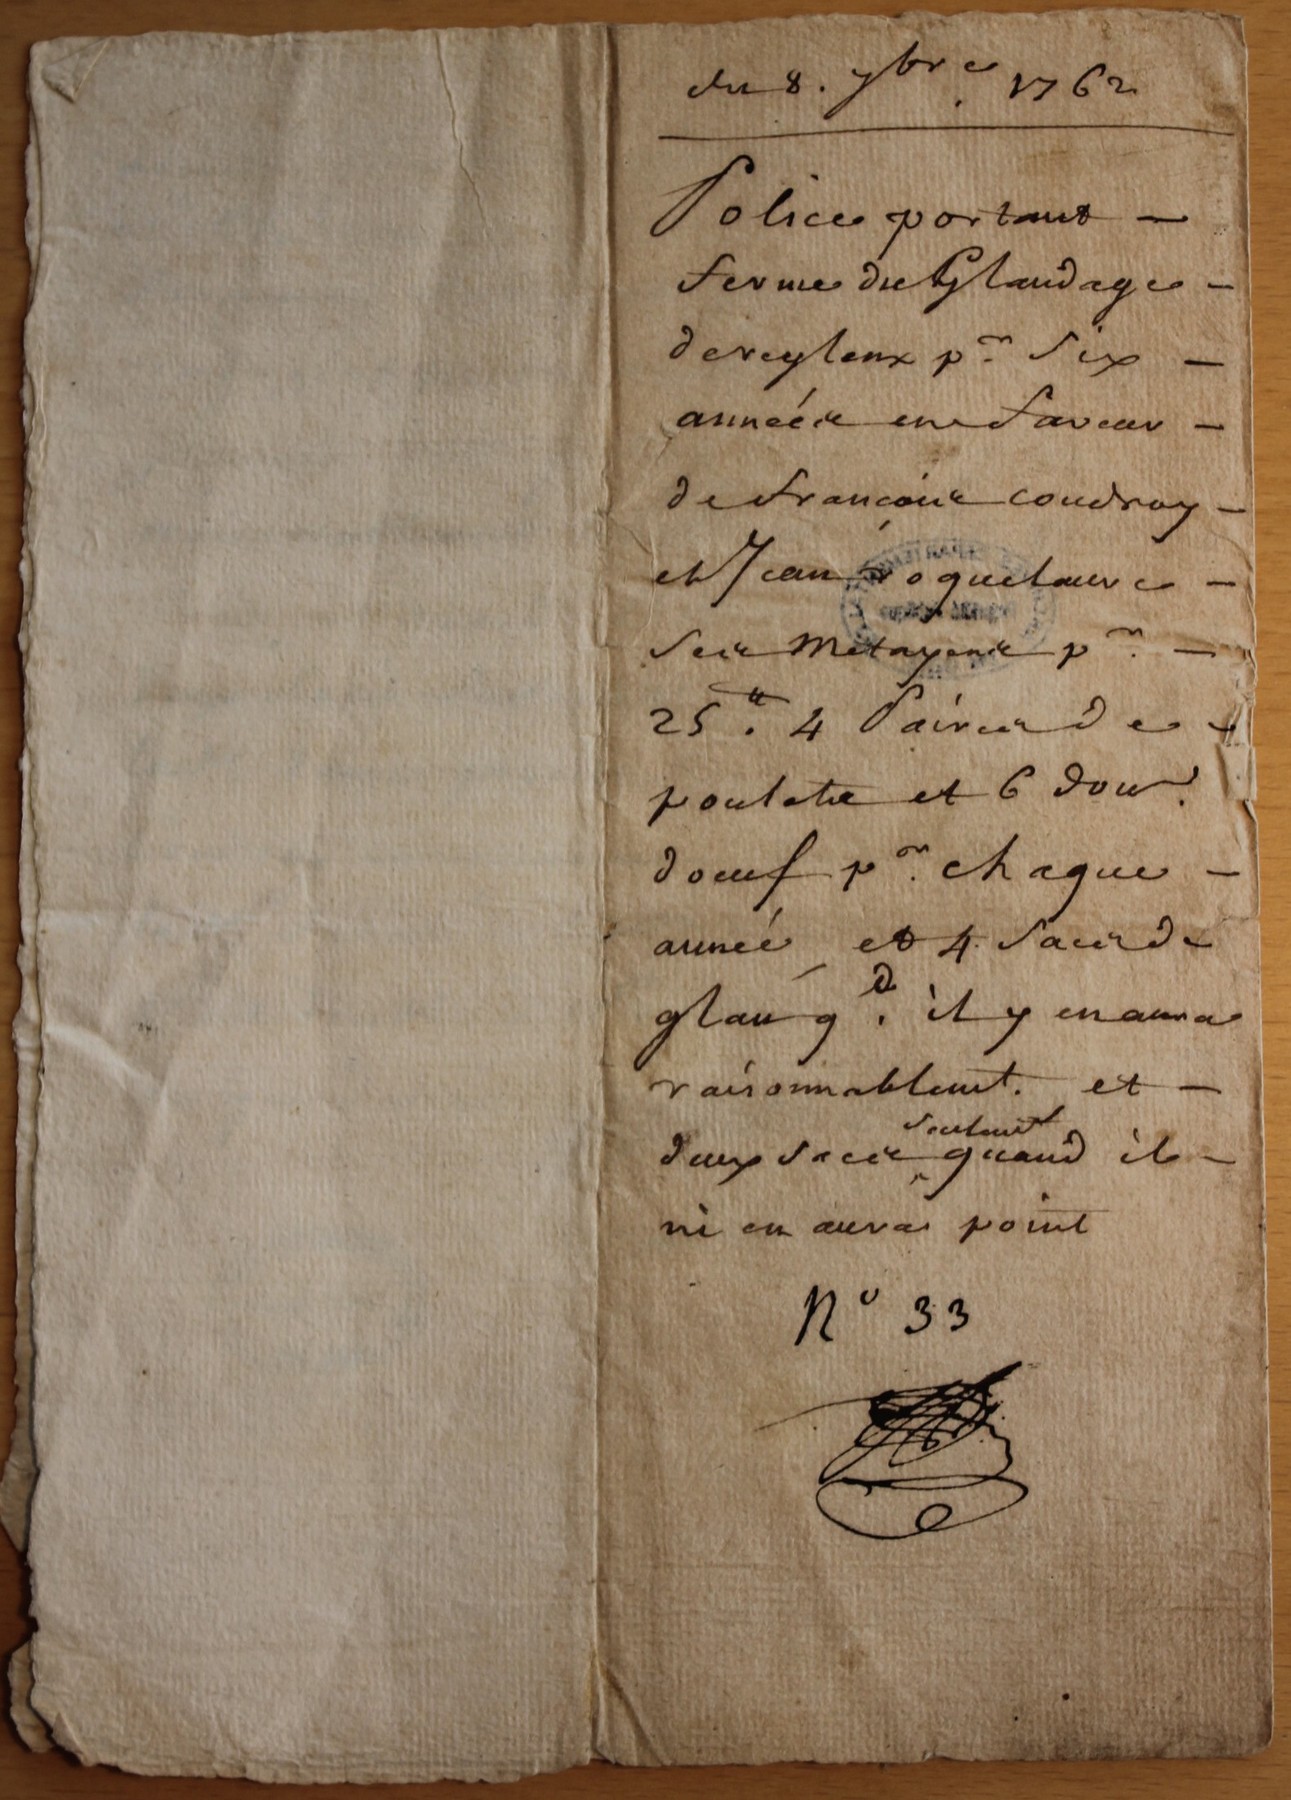 du 8. 7bre. 1762
Police portant
ferme du Glandage
de reyleux pr. Six
années en faveur
de françois coudroy
et Jean roquelaure
Ses Metayers pr.
25 ₶. 4 Paires de
poulets et 6 douz.
doeuf pr. chaque
année et 4 Sacs de
glan qd. il y en aura
raisonnablemt. et
deux Sacs seulemt quand il
ni en aura point
No 33